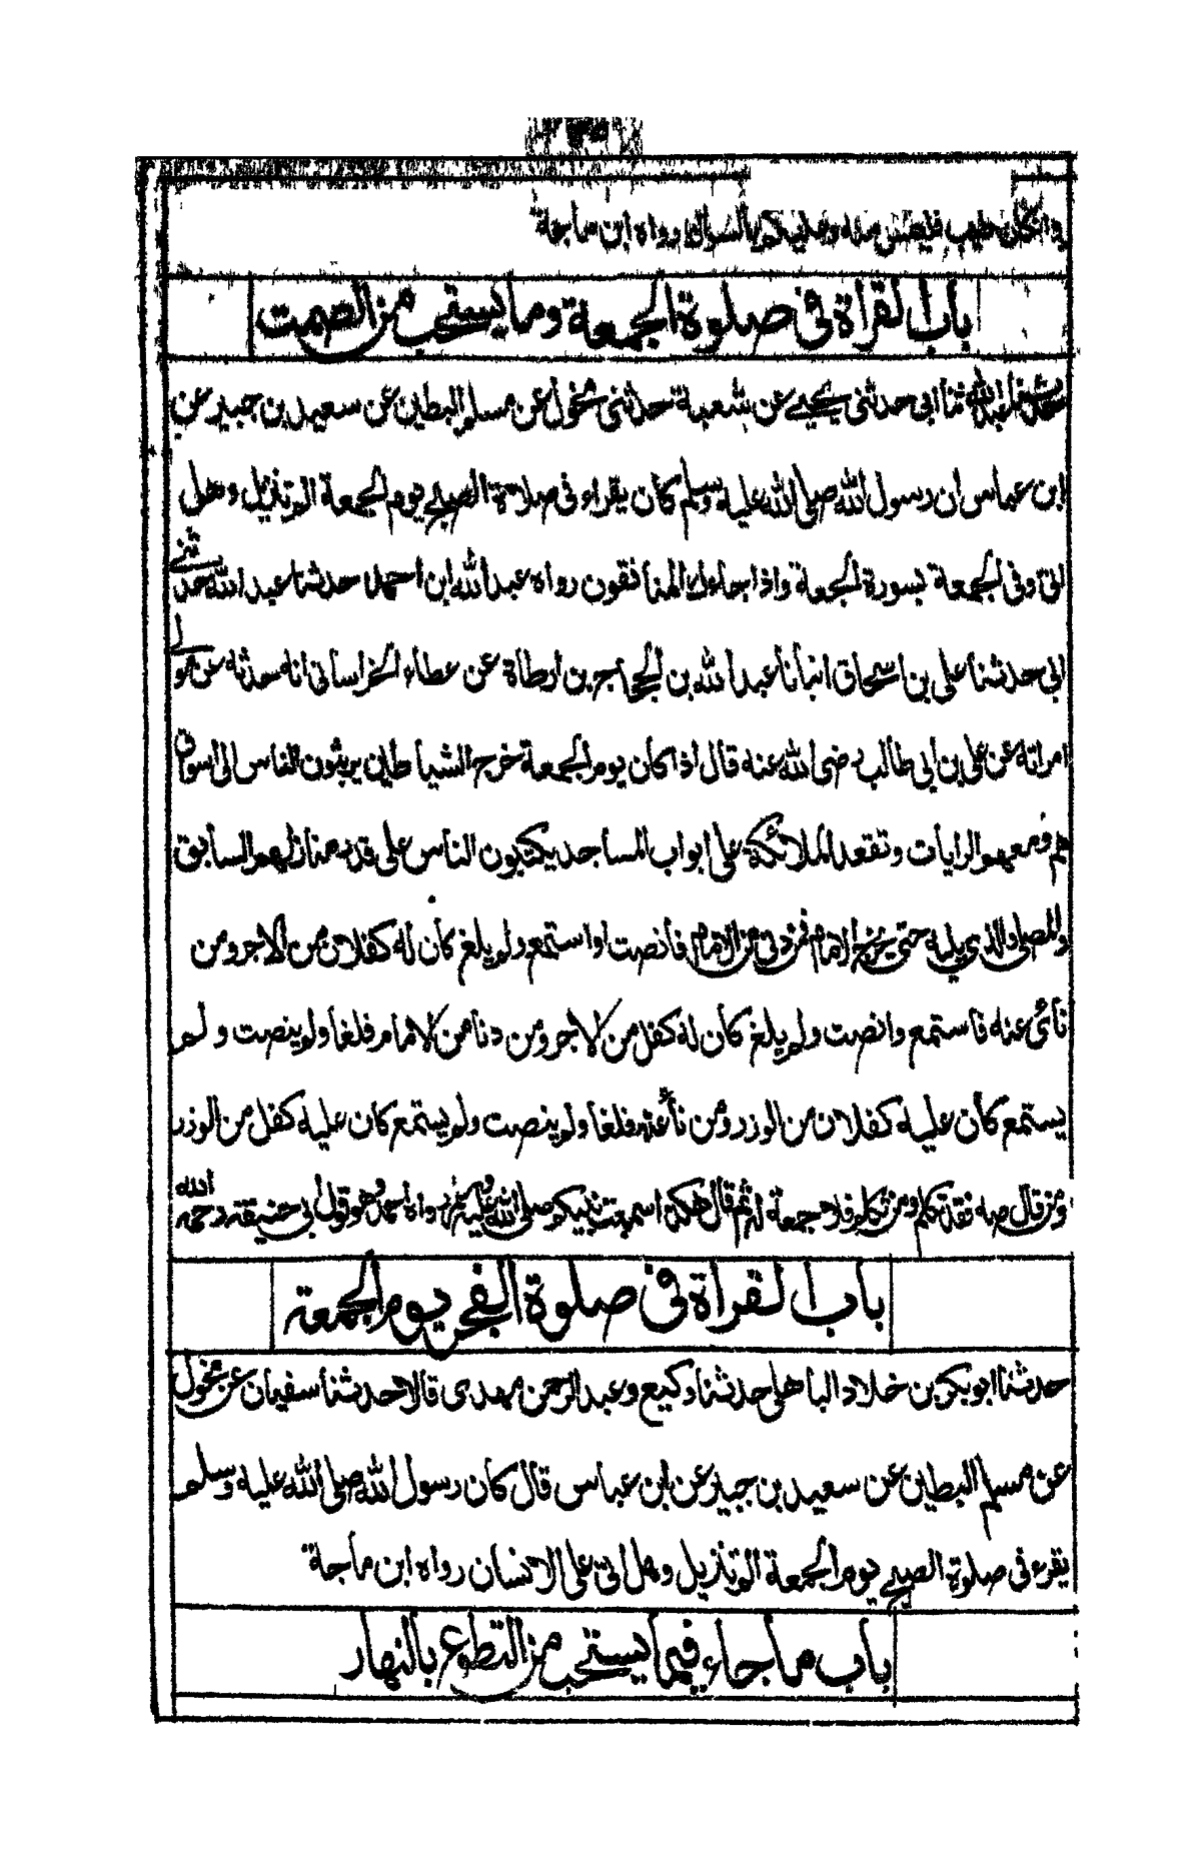 وان كان طيب فليمس منه وعليكم بالسواك رواه ابن ماجة
باب القرأة فى صلوة الجمعة وما يستحب من الصمت
حدثنا عبد الله ثنا ابى حدثنى يحيى عن شعبة حدثنى مخول عن مسلم البطين عن سعيد بن جبير عن
ابن عباس ان رسول الله صلى الله عليه وسلم كان يقراء فى صلاة الصبح يوم الجمعة الم تنزيل وهل
اتى وفى الجمعة بسورة الجمعة واذا جاءك المنافقون رواه عبد الله ابن احمد حدثنا عبد الله حدثنى
ابى حدثنا على بن اسحاق انبأنا عبد الله بن الحجاج بن ارطاة عن عطاء الخراسانى انه حدثه عن مولى
امراته عن على بن ابى طالب رضى الله عنه قال اذا كان يوم الجمعة خرج الشياطين يريثون الناس الى اسواق
هم ومعهم الرايات وتقعد الملائكة على ابواب المساجد يكتبون الناس على قدر منازلهم السابق
والمصلى والذى يليه حتى يخرج الامام فمن دنى من الامام فانصت اواستمع ولم يلغ كان له كفلان من الاجر ومن
نأئ عنه فاستمع وانصت ولم يلغ كان له كفل من الاجر ومن دنا من الامام فلغا ولم ينصت ولم
يستمع كان عليه كفلان من الوزر ومن نأ عنه فلغا ولم ينصت ولم يستمع كان عليه كفل من الوزر
ومن قال صه فقد تكلم ومن تكلم فلا جمعة له ثم قال هكذا سمعت نبيكم صلى الله عليه وسلم رواه احمد وهو قول ابى حنيفة رحمه الله
باب القرأة فى صلوة الفجر يوم الجمعة
حدثنا ابو بكر بن خلاد الباهلى حدثنا وكيع وعبد الرحمن مهدى قالا حدثنا سفيان عن مخول
عن مسلم البطين عن سعيد بن جبير عن ابن عباس قال كان رسول الله صلى الله عليه وسلم
يقرء فى صلوة الصبح يوم الجمعة الم تنزيل وهل اتى على الانسان رواه ابن ماجة
باب ما جاء فيما يستحب من التطوع بالنهار